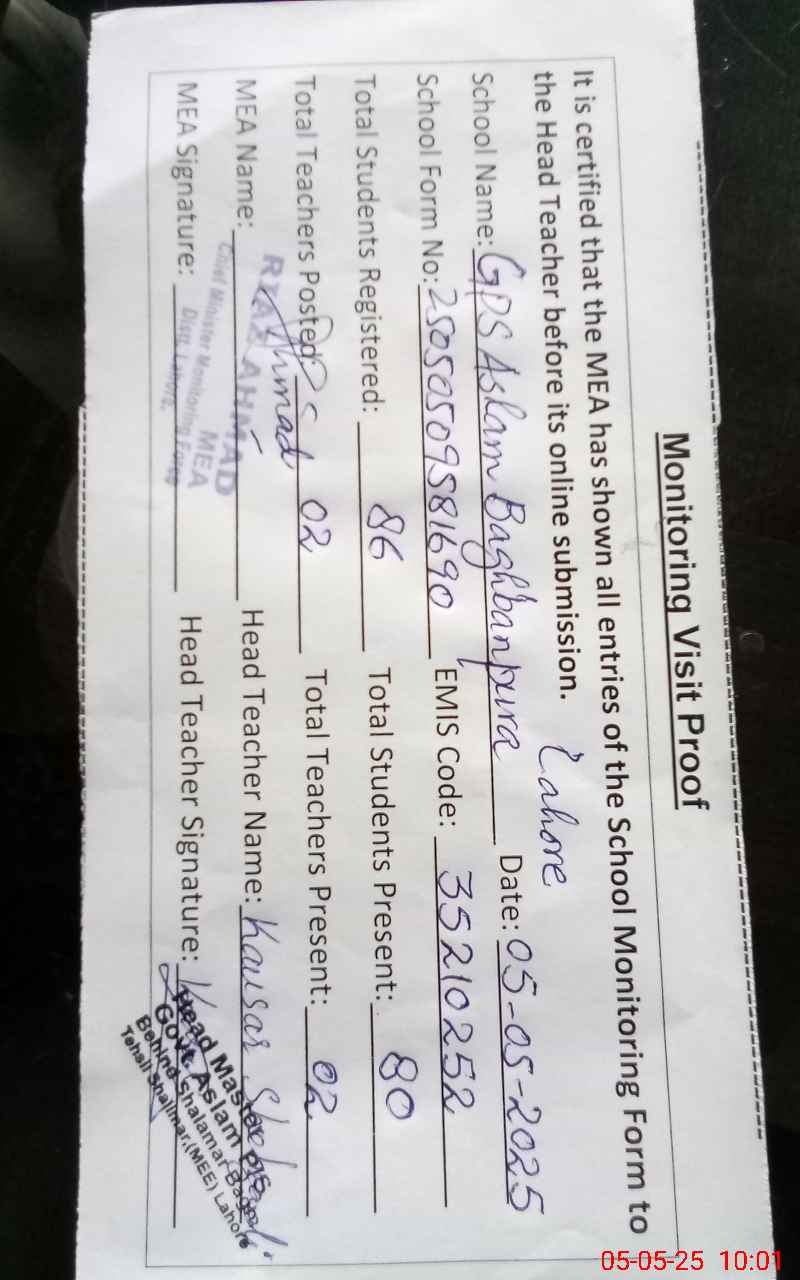 Monitoring Visit Proof
It is certified that the MEA has shown all entries of the School Monitoring Form to
the Head Teacher before its online submission.
Lahore
School Name: GPS Aslam Baghbanpura Date: 05-05-2025
School Form No: 25050509581690 EMIS Code: 35210252
Total Students Registered: 86 Total Students Present: 80
Total Teachers Posted: 02 Total Teachers Present: 02
MEA Name: Head Teacher Name: Kausar
RIAZ AHMAD
MEA
Chief Minister Monitoring Force
Distt. Lahore.
MEA Signature: Ahmad Head Teacher Signature:
Head Master
Govt. Aslam P/S
Behind Shalamar Bagh
Tehsil Shalimar,(MEE) Lahore
05-05-25 10:01